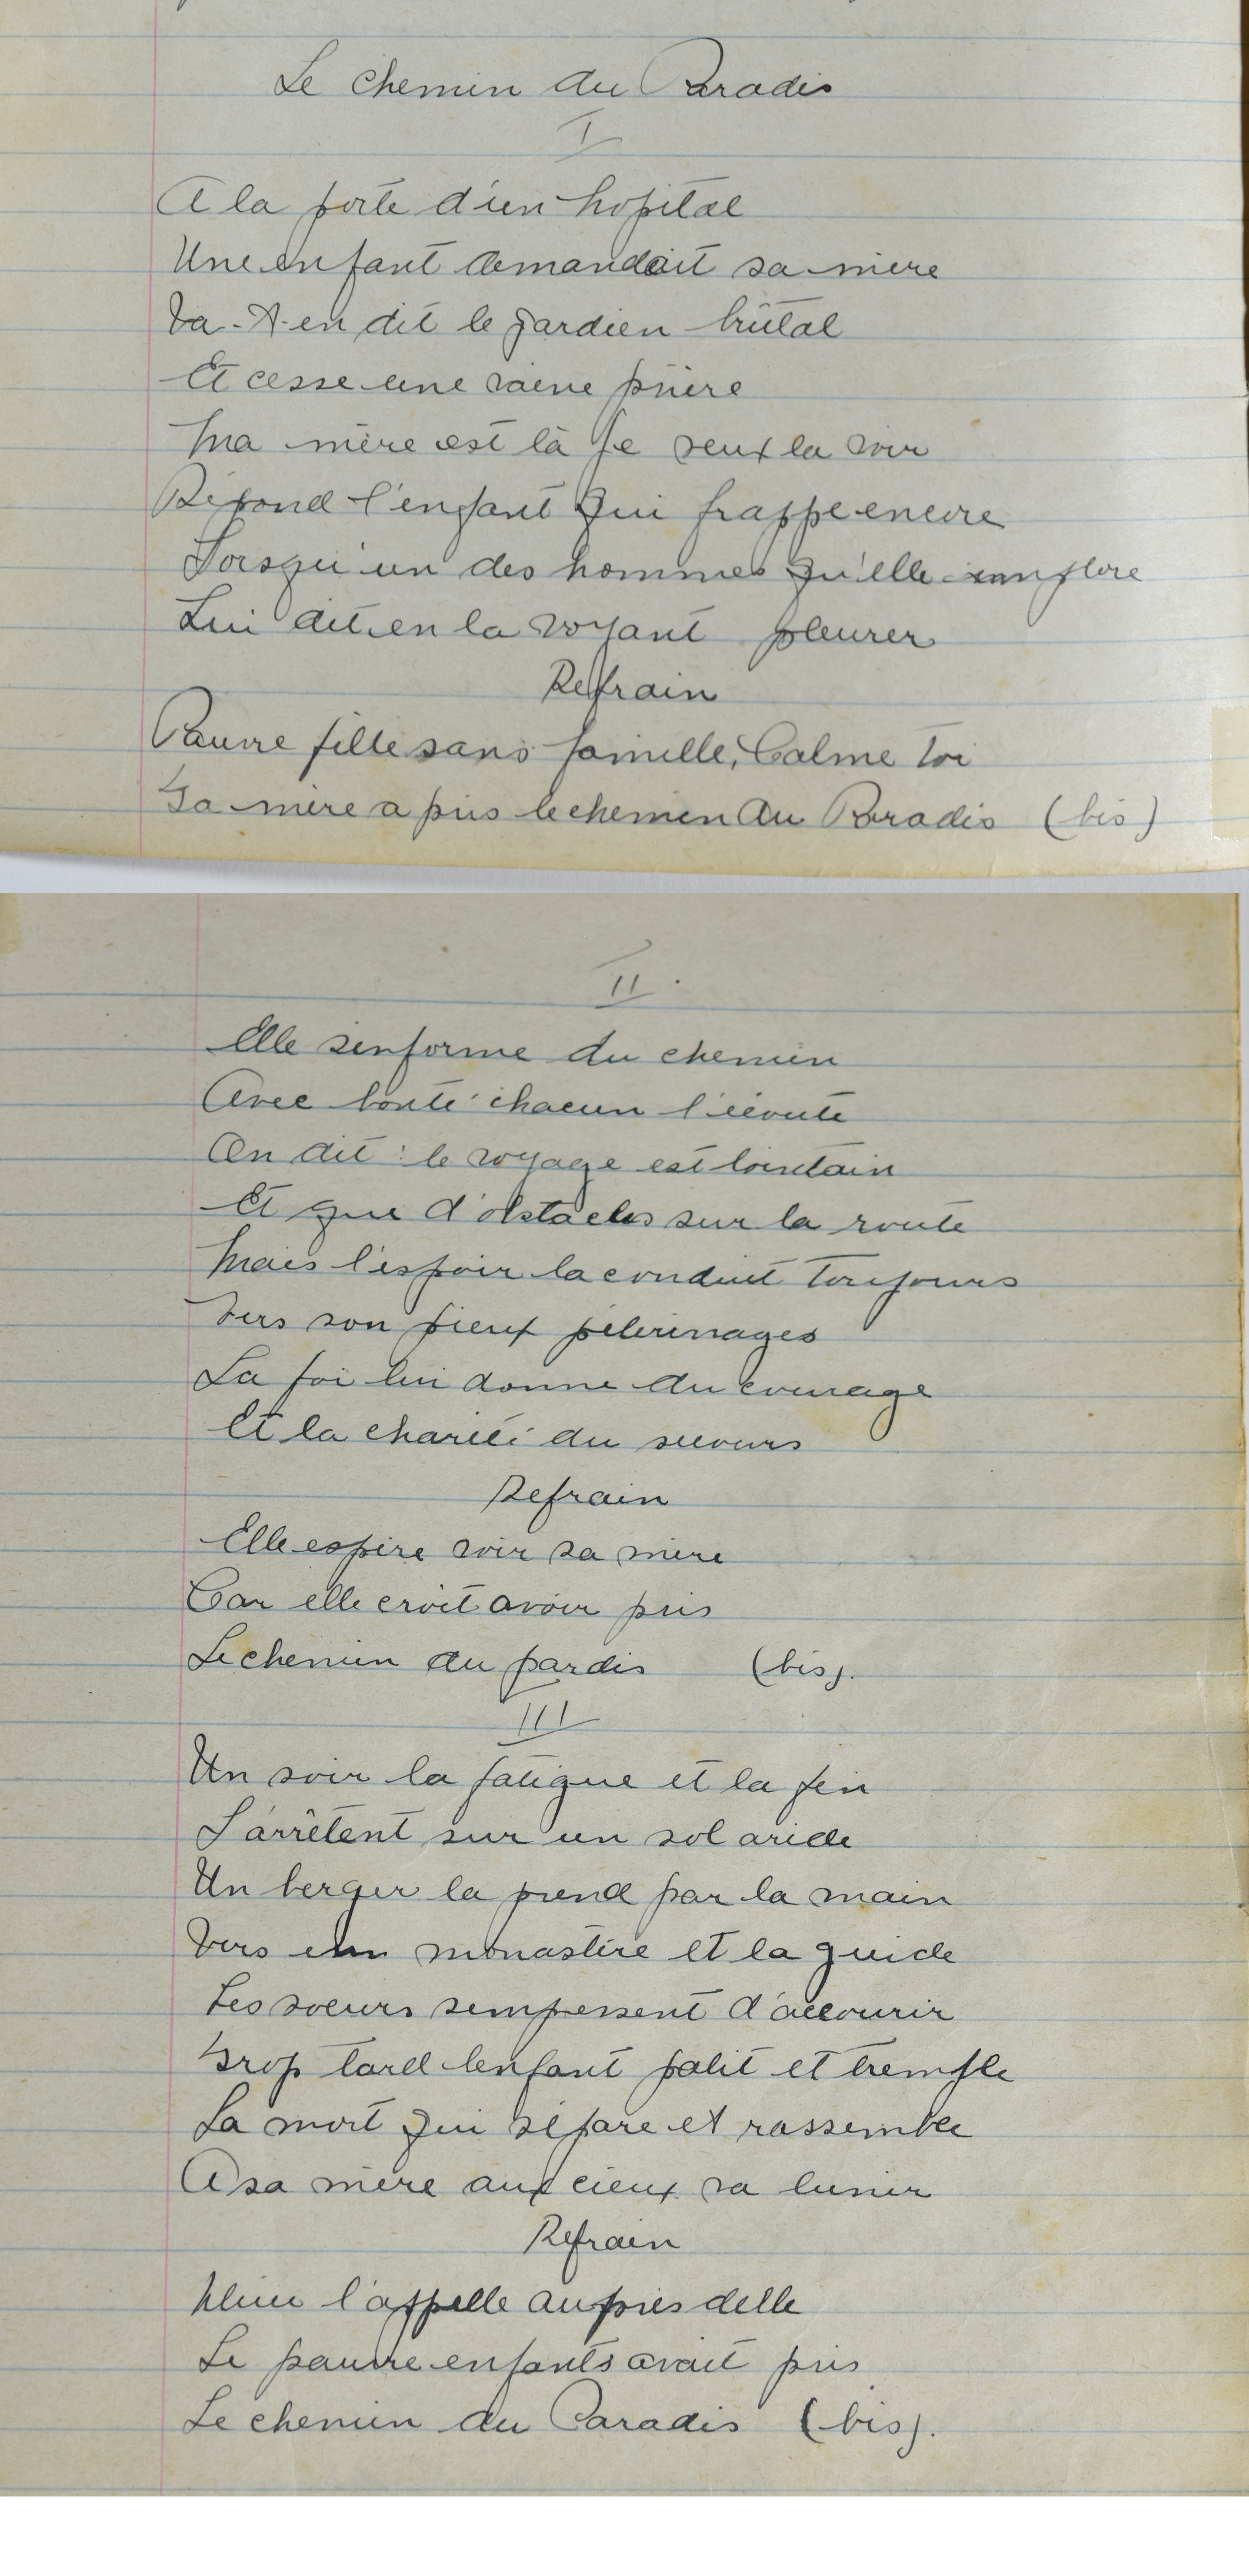 Le chemin du Paradis
I
A la porte d'un hopital
Une enfant demandait sa mère
Va-t-en dit le gardien brûtal
Et cesse une vaine prière
Ma mère est là Je veux la voir
Répond l'enfant qui frappe encore
Lorsqu'un des hommes qu'elle implore
Lui dit en la voyant pleurer
Refrain
Pauvre fille sans famille, Calme toi
Ta mère a pris le chemin du Paradis (bis)
II.
Elle s'enforme du chemin
Avec bonté chacun l'écoute
On dit : le voyage est lointain
Et que d'obstacles sur la route
Mais l'espoir la conduit toujours
Vers son pieux pélerinages
La foi lui donne du courage
Et la charité du secours
Refrain
Elle espère voir sa mère
Car elle croit avoir pris
Le chemin du pardis (bis).
III
Un soir la fatigue et la fin
S'arrêtent sur un sol aride
Un berger la prend par la main
Vers un monastère et la guide
Les soeurs sempressent d'accourir
Trop tard lenfant palit et tremple
La mort qui sépare et rassemble
A sa mère aux cieux va lunir
Refrain
l'appelle auprès delle
Le pauvre enfants avait pris
Le chemin du Paradis (bis).